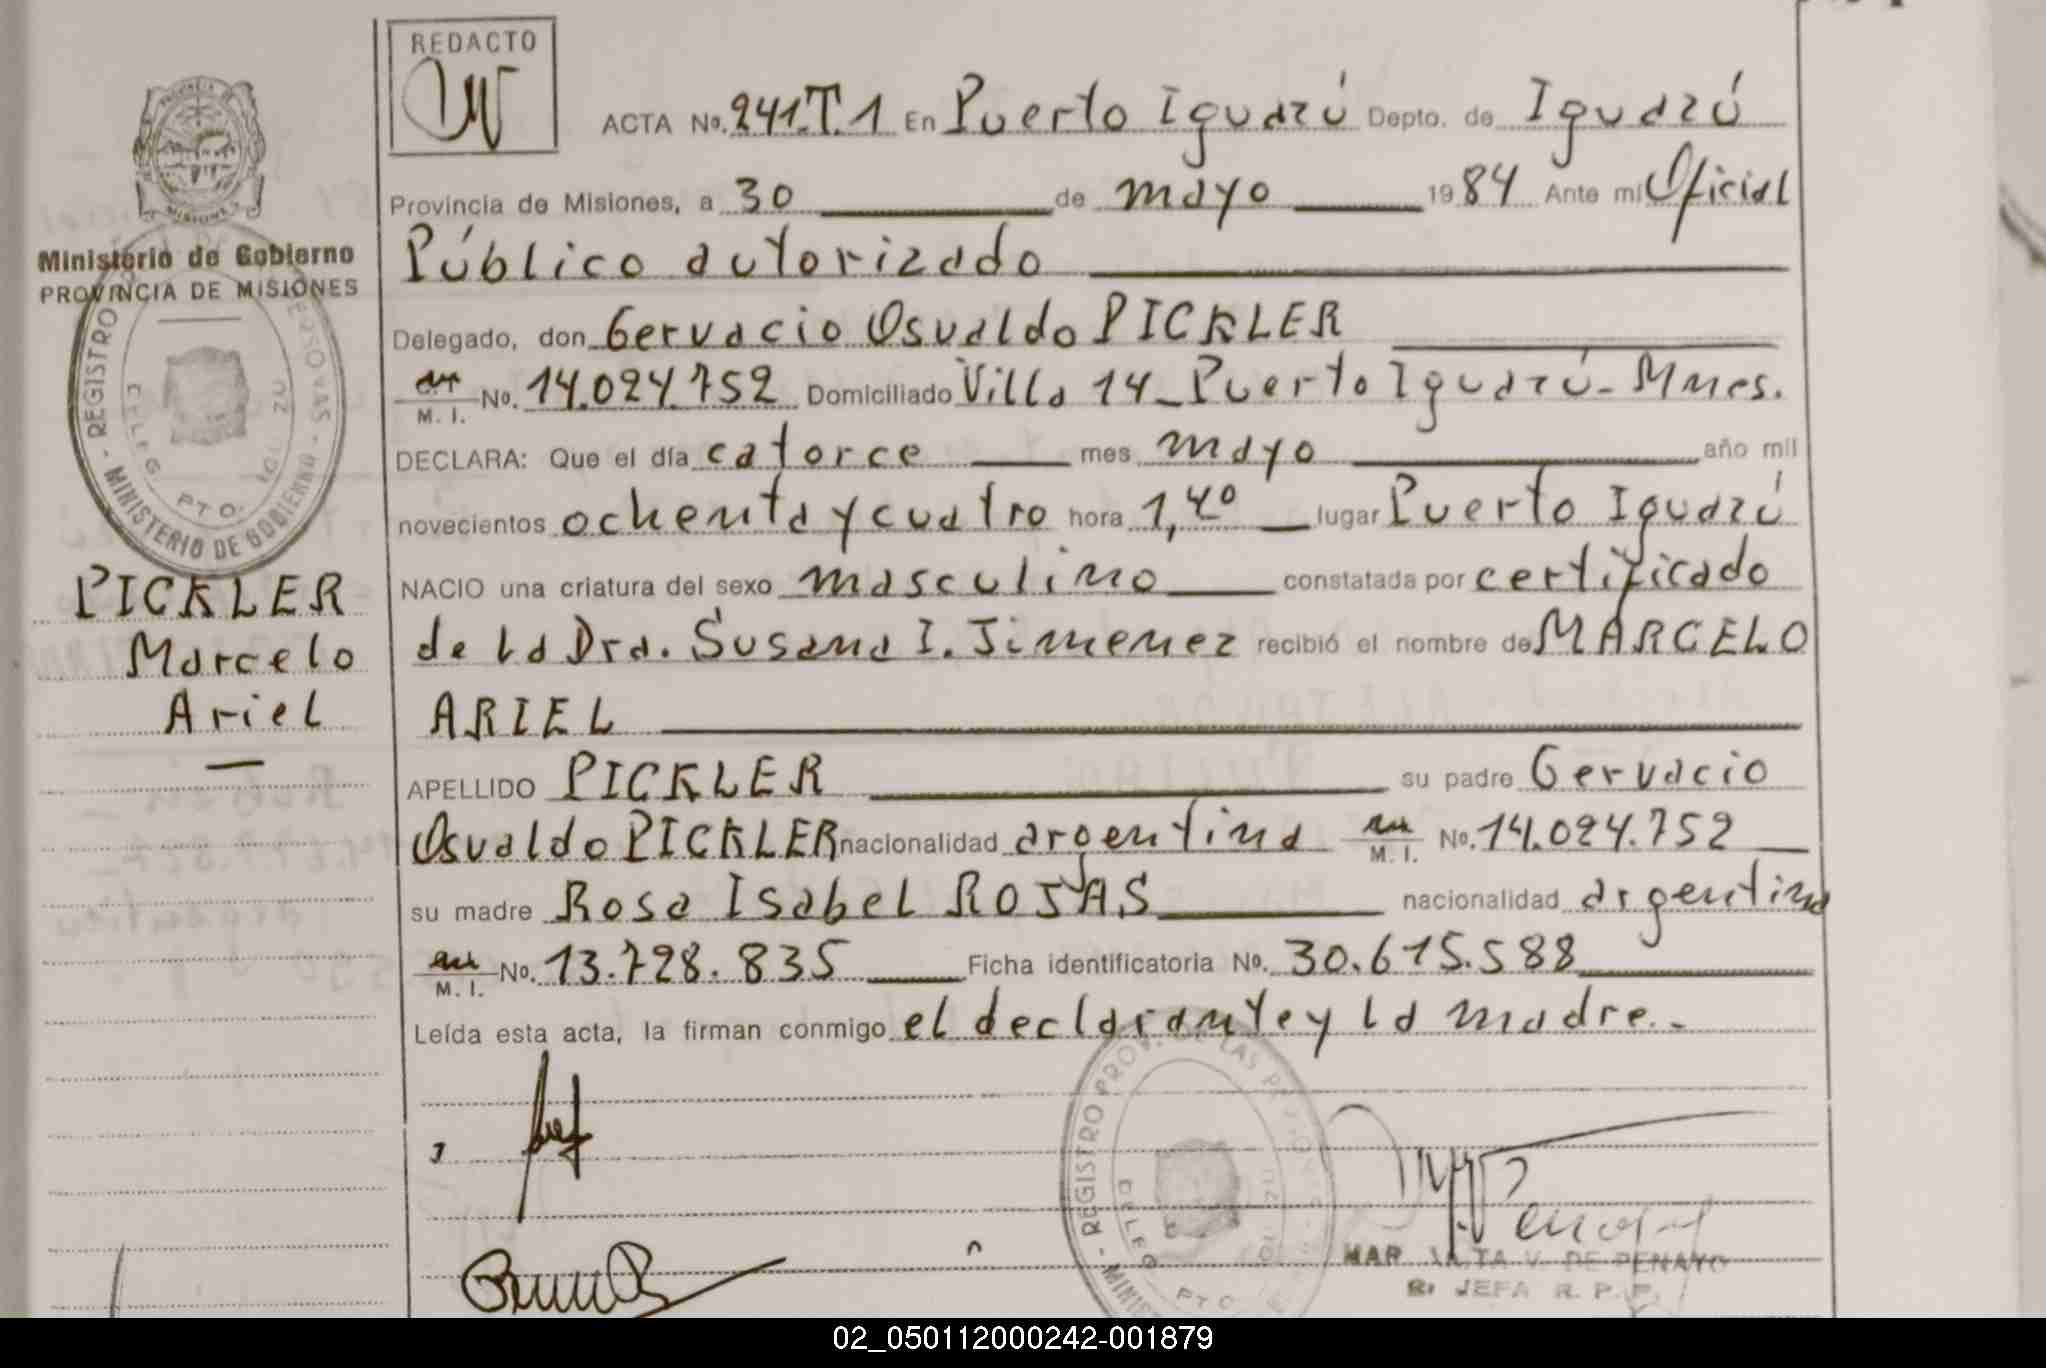 REDACTO
ACTA No. 241.T.1 En Puerto Iguazú Depto. de Iguazú
Provincia de Misiones, a 30 de mayo 1984 Ante mí Oficial
Público autorizado
Delegado, don Gervacio Osvaldo PICKLER
M. I. No. 14.024.752 Domiciliado Villa 14_Puerto Iguazú_Mnes.
DECLARA: Que el día catorce mes mayo año mil
novecientos ochenta y cuatro hora 1,40 lugar Puerto Iguazú
NACIO una criatura del sexo masculino constatada por certificado
de la Dra. Susana I. Jimenez recibió el nombre de MARCELO
ARIEL
APELLIDO PICKLER su padre Gervacio
Osvaldo PICKLER nacionalidad argentina M. I. No. 14.024.752
su madre Rosa Isabel ROJAS nacionalidad argentina
M. I. No. 13.728.835 Ficha identificatoria No. 30.615.588
Leída esta acta, la firman conmigo el declarante y la madre.-
PROVINCIA DE
MISIONES
Ministerio de Gobierno
PROVINCIA DE MISIONES
REGISTRO
MINISTERIO DE GOBIERNO
DELEG. PTO. IGUAZU
PICKLER
Marcelo
Ariel
REGISTRO PROV. DE LAS PERSONAS
DELEG. PTO.
V. DE PENAYO
JEFA R. P. P.
02_050112000242-001879